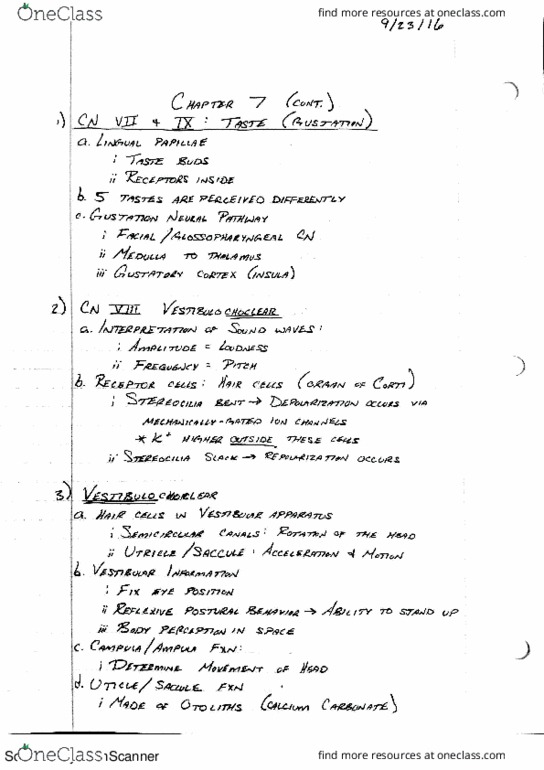 OneClass
find more resources at oneclass.com
9/23/16
CHAPTER 7 (CONT.)
1) CN VII + IX: TASTE (GUSTATION)
a. LINGUAL PAPILLAE
i TASTE BUDS
ii RECEPTORS INSIDE
b. 5 TASTES ARE PERCEIVED DIFFERENTLY
c. GUSTATION NEURAL PATHWAY
i FACIAL/GLOSSOPHARYNGEAL CN
ii MEDULLA TO THALAMUS
iii GUSTATORY CORTEX (INSULA)
2) CN VIII VESTIBULOCHOCLEAR
a. INTERPRETATION OF SOUND WAVES:
i AMPLITUDE = LOUDNESS
ii FREQUENCY = PITCH
b. RECEPTOR CELLS: HAIR CELLS (ORGAN OF CORTI)
i STEREOCILIA BENT → DEPOLARIZATION OCCURS VIA
MECHANICALLY-GATED ION CHANNELS
* K+ HIGHER OUTSIDE THESE CELLS
ii STEREOCILIA SLACK → REPOLARIZATION OCCURS
3) VESTIBULOCHOCLEAR
a. HAIR CELLS IN VESTIBULAR APPARATUS
i SEMICIRCULAR CANALS: ROTATION OF THE HEAD
ii UTRICLE/SACCULE: ACCELERATION & MOTION
b. VESTIBULAR INFORMATION
i FIX EYE POSITION
ii REFLEXIVE POSTURAL BEHAVIOR → ABILITY TO STAND UP
iii BODY PERCEPTION IN SPACE
c. CAMPULA/AMPULA FXN:
i DETERMINE MOVEMENT OF HEAD
d. UTICLE/SACULE FXN
i MADE OF OTOLITHS (CALCIUM CARBONATE)
OneClass
Scanner
find more resources at oneclass.com